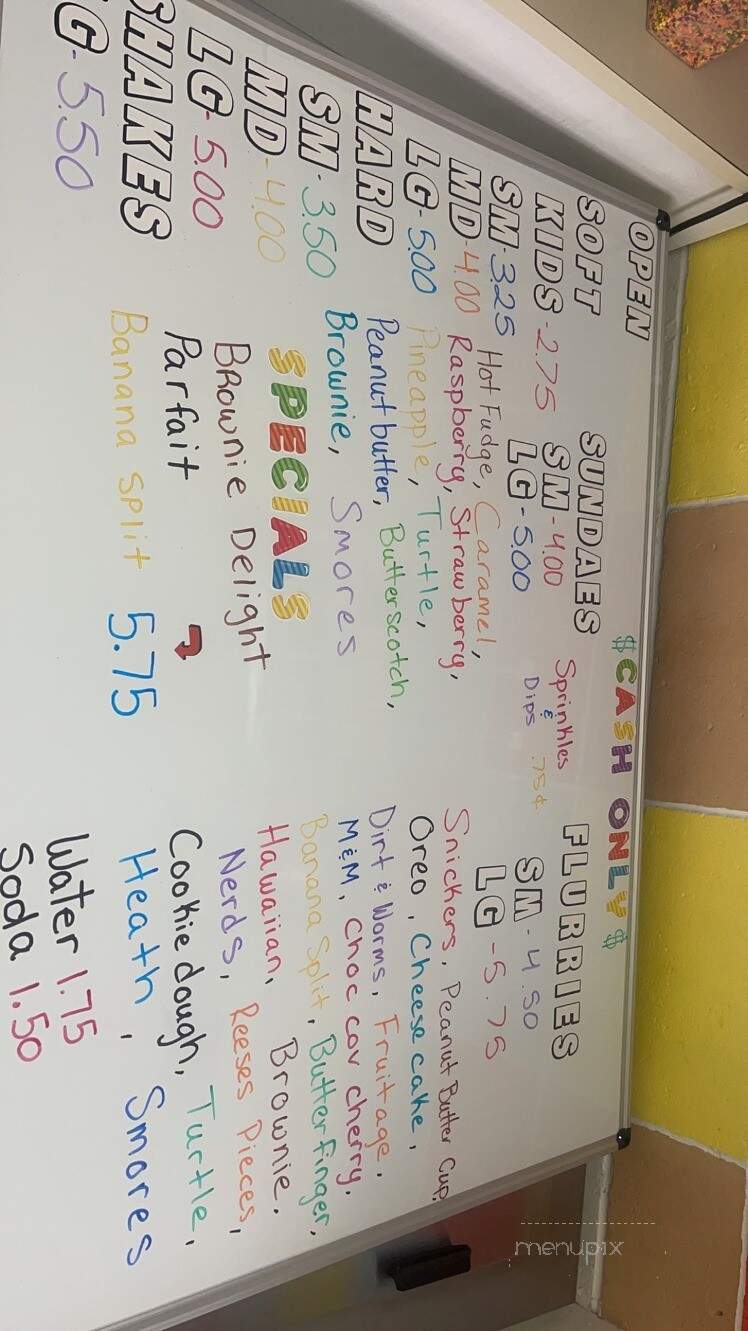 OPEN
$CASH ONLY$
SOFT
KIDS-2.75
SM-3.25
MD-4.00
LG-5.00
HARD
SM-3.50
MD-4.00
LG-5.00
SHAKES
G-5.50
SUNDAES
SM-4.00
LG-5.00
Sprinkles
&
Dips .75¢
Hot Fudge, Caramel,
Raspberry, Strawberry,
Pineapple, Turtle,
Peanut butter, Butterscotch,
Brownie, Smores
SPECIALS
BROwnie Delight
Parfait
Banana split 5.75
FLURRIES
SM-4.50
LG-5.75
Snickers, Peanut Butter Cup,
Oreo, Cheesecake,
Dirt & Worms, Fruitage,
M&M, Choc cov cherry,
Banana Split, Butterfinger,
Hawaiian, Brownie,
Nerds, Reeses Pieces,
Cookie dough, Turtle,
Heath, Smores
Water 1.75
Soda 1.50
menupix